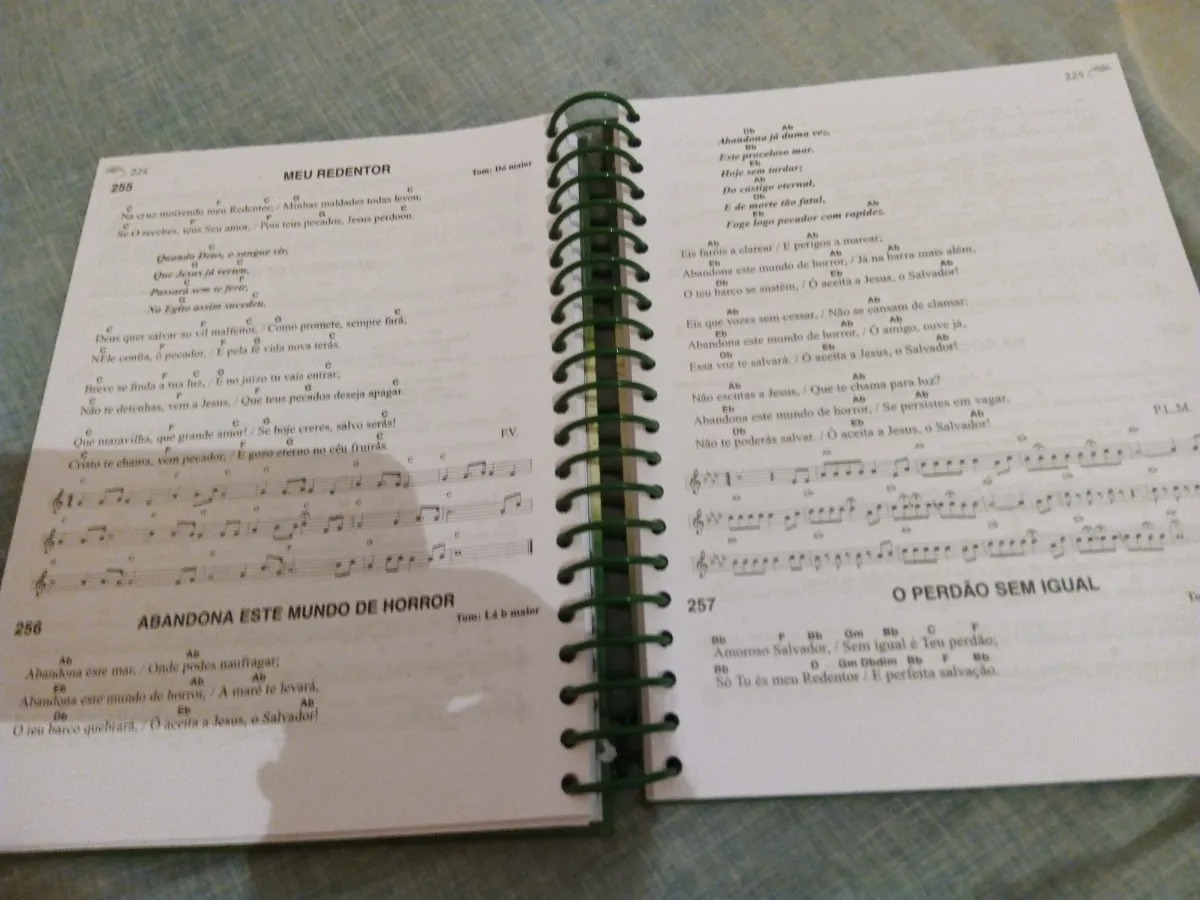 224
255
MEU REDENTOR
Tom: Dó maior
C F C G C
Na cruz morrendo meu Redentor, / Minhas maldades todas levou,
C F F G C
Se O recebes, tens Seu amor, / Pois teus pecados, Jesus perdoou.
C
Quando Deus, o sangue vir,
G C
Que Jesus já verteu,
C F
Passará sem te ferir,
G C
No Egito assim sucedeu.
C F C G C
Deus quer salvar ao vil malfeitor, / Como promete, sempre fará,
C F F G C
NEle confia, ó pecador, / E pela fé vida nova terás.
C F C G C
Breve se finda a tua luz, / E no juízo tu vais entrar;
C F F G C
Não te detenhas, vem a Jesus, / Que teus pecados deseja apagar.
C F C G C
Que maravilha, que grande amor! / Se hoje creres, salvo serás!
C F F G C
Cristo te chama, vem pecador, / E gozo eterno no céu fruirás.
F.V.
256
ABANDONA ESTE MUNDO DE HORROR
Tom: Lá b maior
Ab Ab
Abandona este mar, / Onde podes naufragar;
Eb Ab Ab
Abandona este mundo de horror, / A maré te levará,
Db Eb Ab
O teu barco quebrará, / Ó aceita a Jesus, o Salvador!
225
Db Ab
Abandona já duma vez,
Db
Este proceloso mar.
Eb
Hoje sem tardar;
Ab
Do castigo eternal,
Ab
E de morte tão fatal,
Eb Ab
Foge logo pecador com rapidez.
Ab Ab
Eis faróis a clarear / E perigos a marcar;
Eb Ab Ab
Abandona este mundo de horror, / Já na barra mais além.
Db Eb Ab
O teu barco se sustém, / Ó aceita a Jesus, o Salvador!
Ab Ab
Eis que vozes sem cessar, / Não se cansam de clamar;
Eb Ab Ab
Abandona este mundo de horror, / Ó amigo, ouve já,
Db Eb Ab
Essa voz te salvará. / Ó aceita a Jesus, o Salvador!
Ab Ab
Não escutas a Jesus, / Que te chama para luz?
Eb Ab Ab
Abandona este mundo de horror, / Se persistes em vagar,
Db Eb Ab
Não te poderás salvar. / Ó aceita a Jesus, o Salvador!
P.L.M.
257
O PERDÃO SEM IGUAL
Bb F Bb Gm Bb C F
Amoroso Salvador, / Sem igual é Teu perdão;
Bb D Gm Dbdim Bb F Bb
Só Tu és meu Redentor / E perfeita salvação.